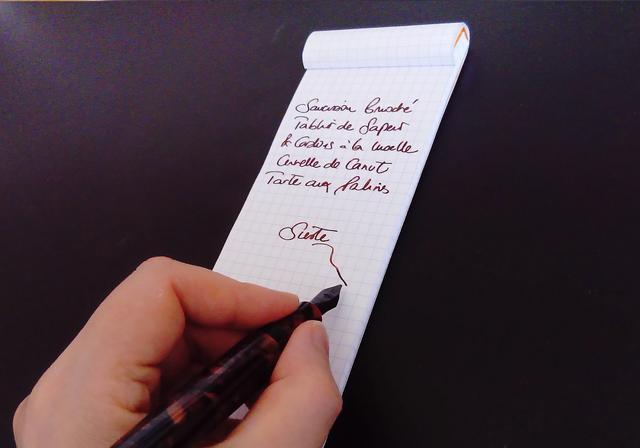 Saucisson brioché
Tablier de Sapeur
& Cardons à la moelle
Cervelle de Canut
Tarte aux Pralines
Sieste